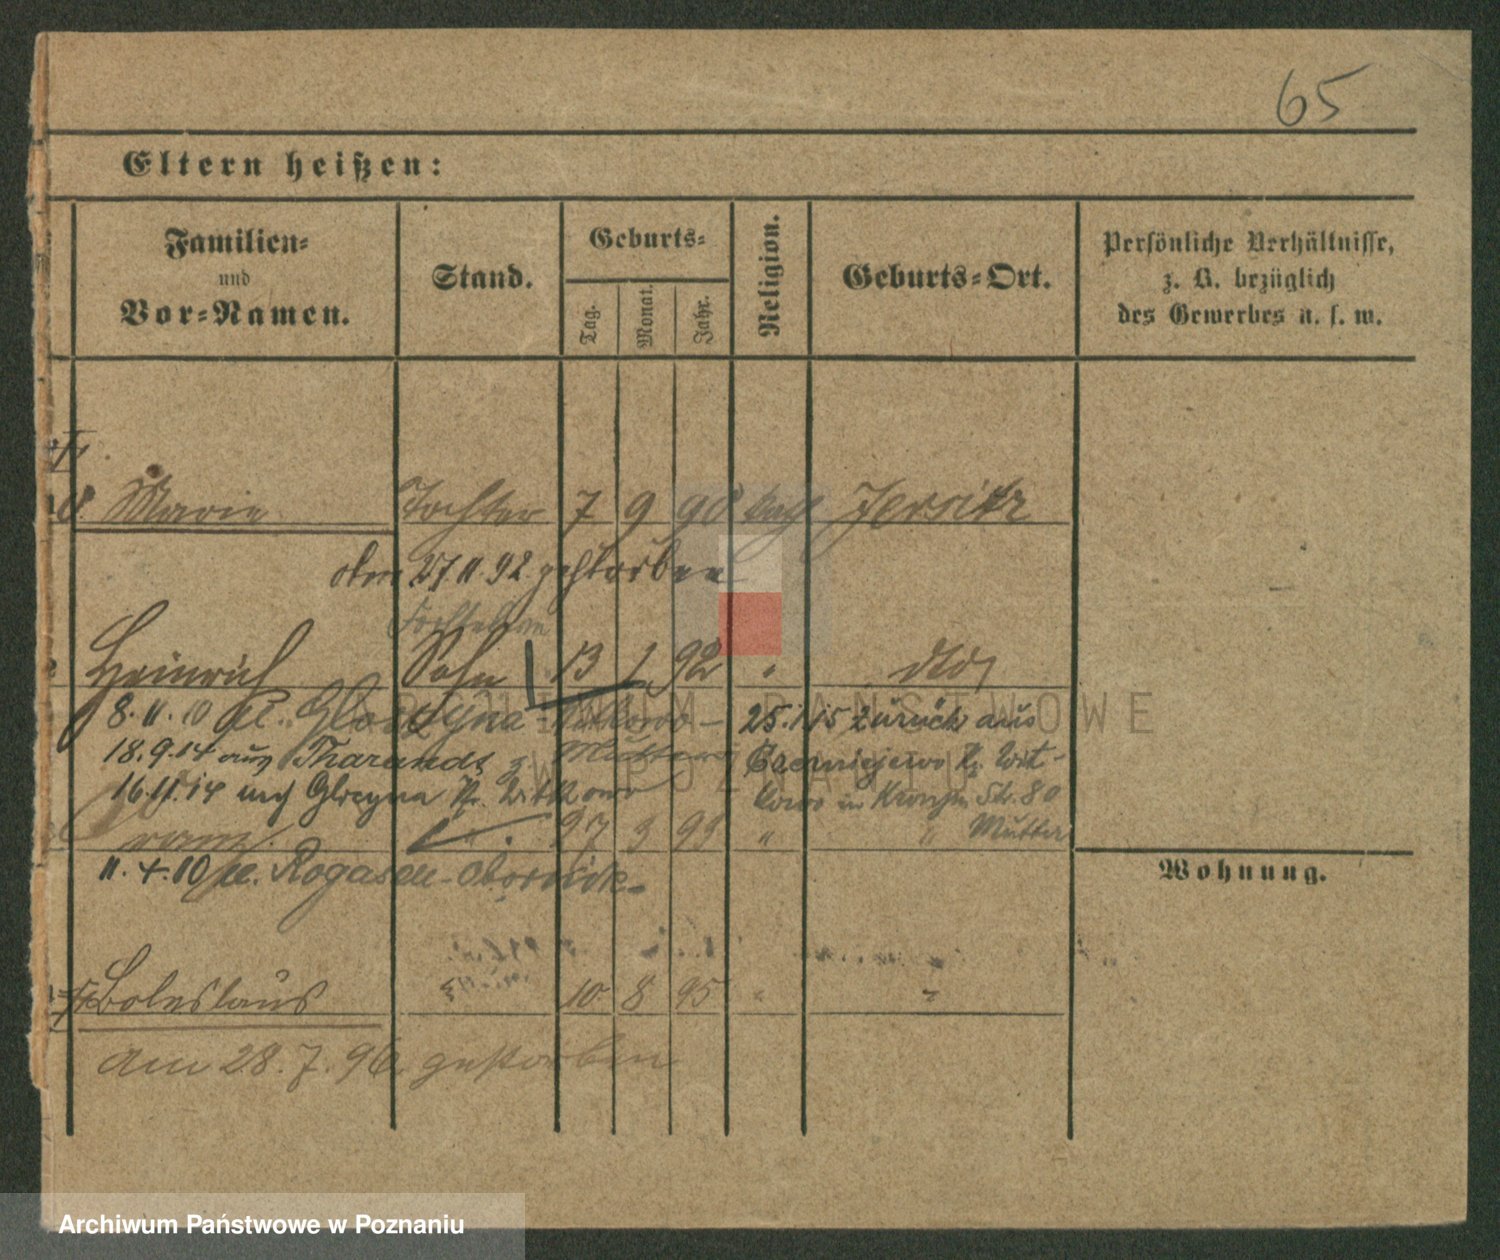 65
Eltern heißen:
Familien= und Vor=Namen.
Stand.
Geburts=
Tag.
Monat.
Jahr.
Religion.
Geburts=Ort.
Persönliche Verhältnisse, z. B. bezüglich des Gewerbes u. s. w.
Marie Tochter 7 9 90 kath Jersitz
am 27.11.92. gestorben
Heinrich Sohn 13 1 92 " dto
8.11.10 Gloczyna - Witkowo -
18.9.14 aus Tharandt z. Mutter
16.11.14 nach Gloczyna Kr. Witkowo
25.1.15 zurück aus
Czerniejewo Kr. Wit-
kowo in Str. 80
Mutter
27 3 93 " "
11.4.10 Rogasen - Obornik -
Wohnung.
Boleslaus 10 8 95 " "
am 28.7.96. gestorben
ARCHIWUM PAŃSTWOWE
W POZNANIU
Archiwum Państwowe w Poznaniu